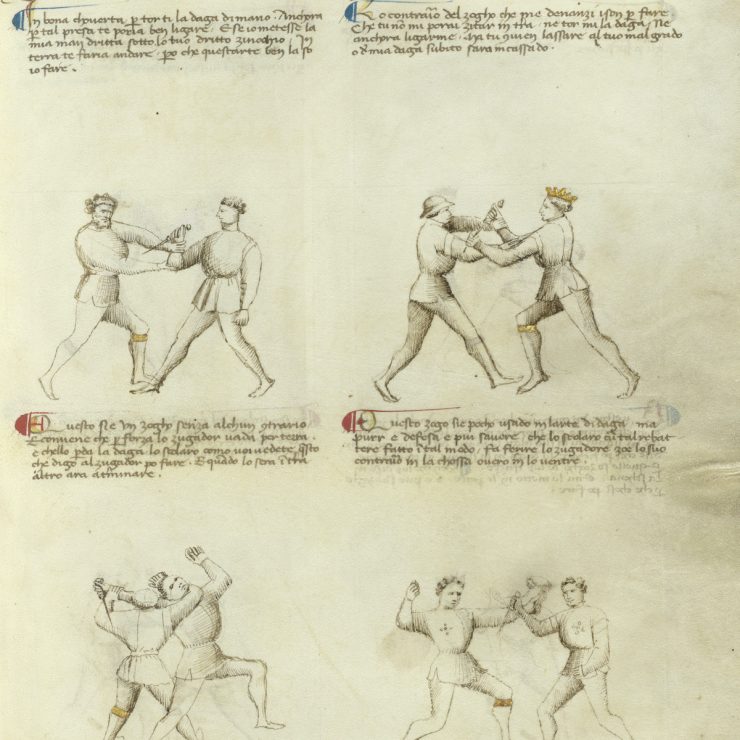 In bona choverta, per tor ti la daga di mano. Anchora
per tal presa te poria ben ligare. E se io metesse la
mia man dritta sotto lo tuo dritto zinochio, In
terra te faria andare, per che questarte ben la so
io fare.
Lo contrario del zogho che me denanzi i son per fare
Che tu non mi porai zitar in terra, ne tor mi la daga, Ne
anchora ligarme. Ma tu convien lassare al tuo mal grado
o de mia daga subito sarai incassado.
Questo si e un zogho senza alchun contrario
E conviene che per forza lo zugador vada per terra.
e chello perda la daga lo scolaro como voi vedete, questo
che digo al zugador po fare. E quando lo sera in terra
altro ara a terminare.
Questo zogo si e pocho usado in larte di daga, ma
purr e defesa e piu savere, che lo scolaro cum tal rebat
tere fatto in tal modo, fa ferire lo zugadore zoe lo suo
contrario in la chossa overo in lo ventre.